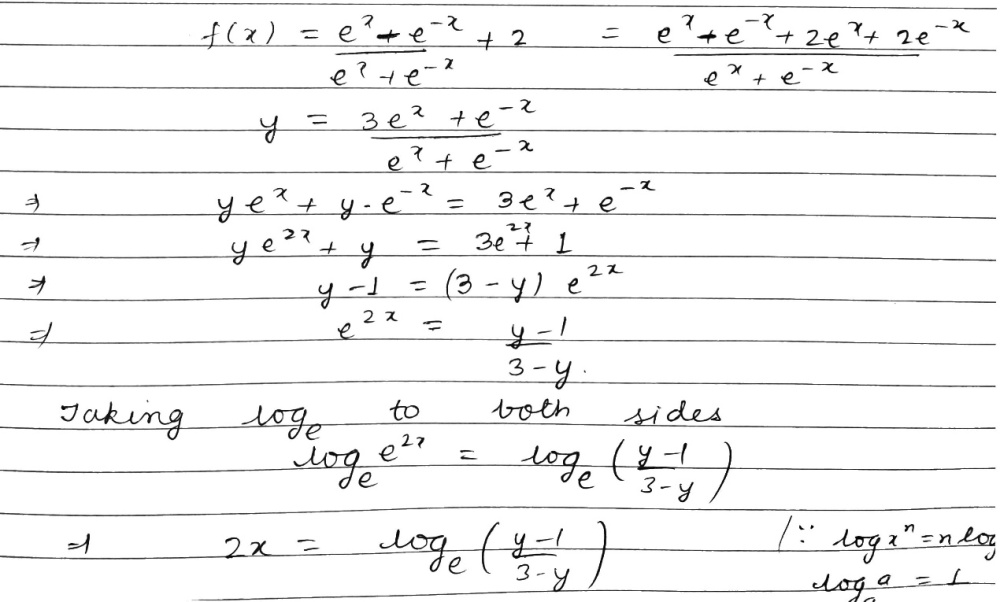 f(x) = (e^x + e^-x)/(e^x + e^-x) + 2 = (e^x + e^-x + 2e^x + 2e^-x)/(e^x + e^-x)
y = (3e^x + e^-x)/(e^x + e^-x)
⇒ ye^x + y·e^-x = 3e^x + e^-x
⇒ ye^2x + y = 3e^2x + 1
⇒ y-1 = (3-y) e^2x
⇒ e^2x = (y-1)/(3-y).
Taking log_e to both sides
log_e e^2x = log_e ((y-1)/(3-y))
⇒ 2x = log_e ((y-1)/(3-y)) (∵ log x^n = n log
log_a a = 1